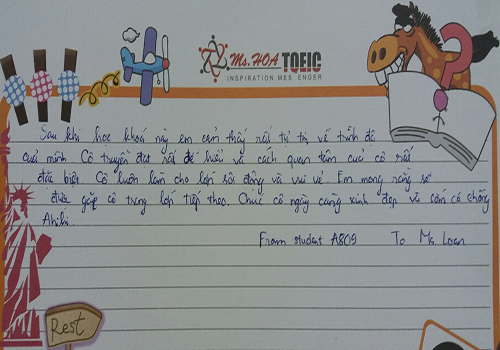 Ms.HOA TOEIC
INSPIRATION MES ENGER
Sau khi học khoá này em cảm thấy rất tự tin về trình độ
của mình Cô truyền đạt rất dễ hiểu và cách quan tâm của cô rất
đặc biệt Cô luôn làm cho lớp sôi động và vui vẻ Em mong rằng sẽ
được gặp cô trong lớp tiếp theo. Chúc cô ngày càng xinh đẹp và sớm có chồng
Ahihi.
From student A809 To Ms. Loan
Rest